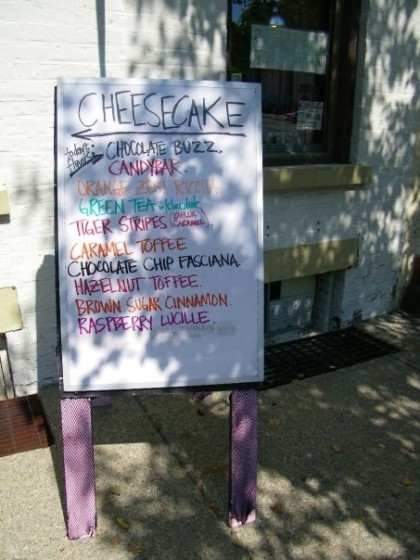 CHEESECAKE
today's flavors
CHOCOLATE BUZZ.
CANDYBAR.
ORANGE ZEST RICOTTA.
GREEN TEA w/chocolate
TIGER STRIPES (KAHLUA CARAMEL).
CARAMEL TOFFEE
CHOCOLATE CHIP FASCIANA.
HAZELNUT TOFFEE.
BROWN SUGAR CINNAMON.
RASPBERRY LUCILLE.